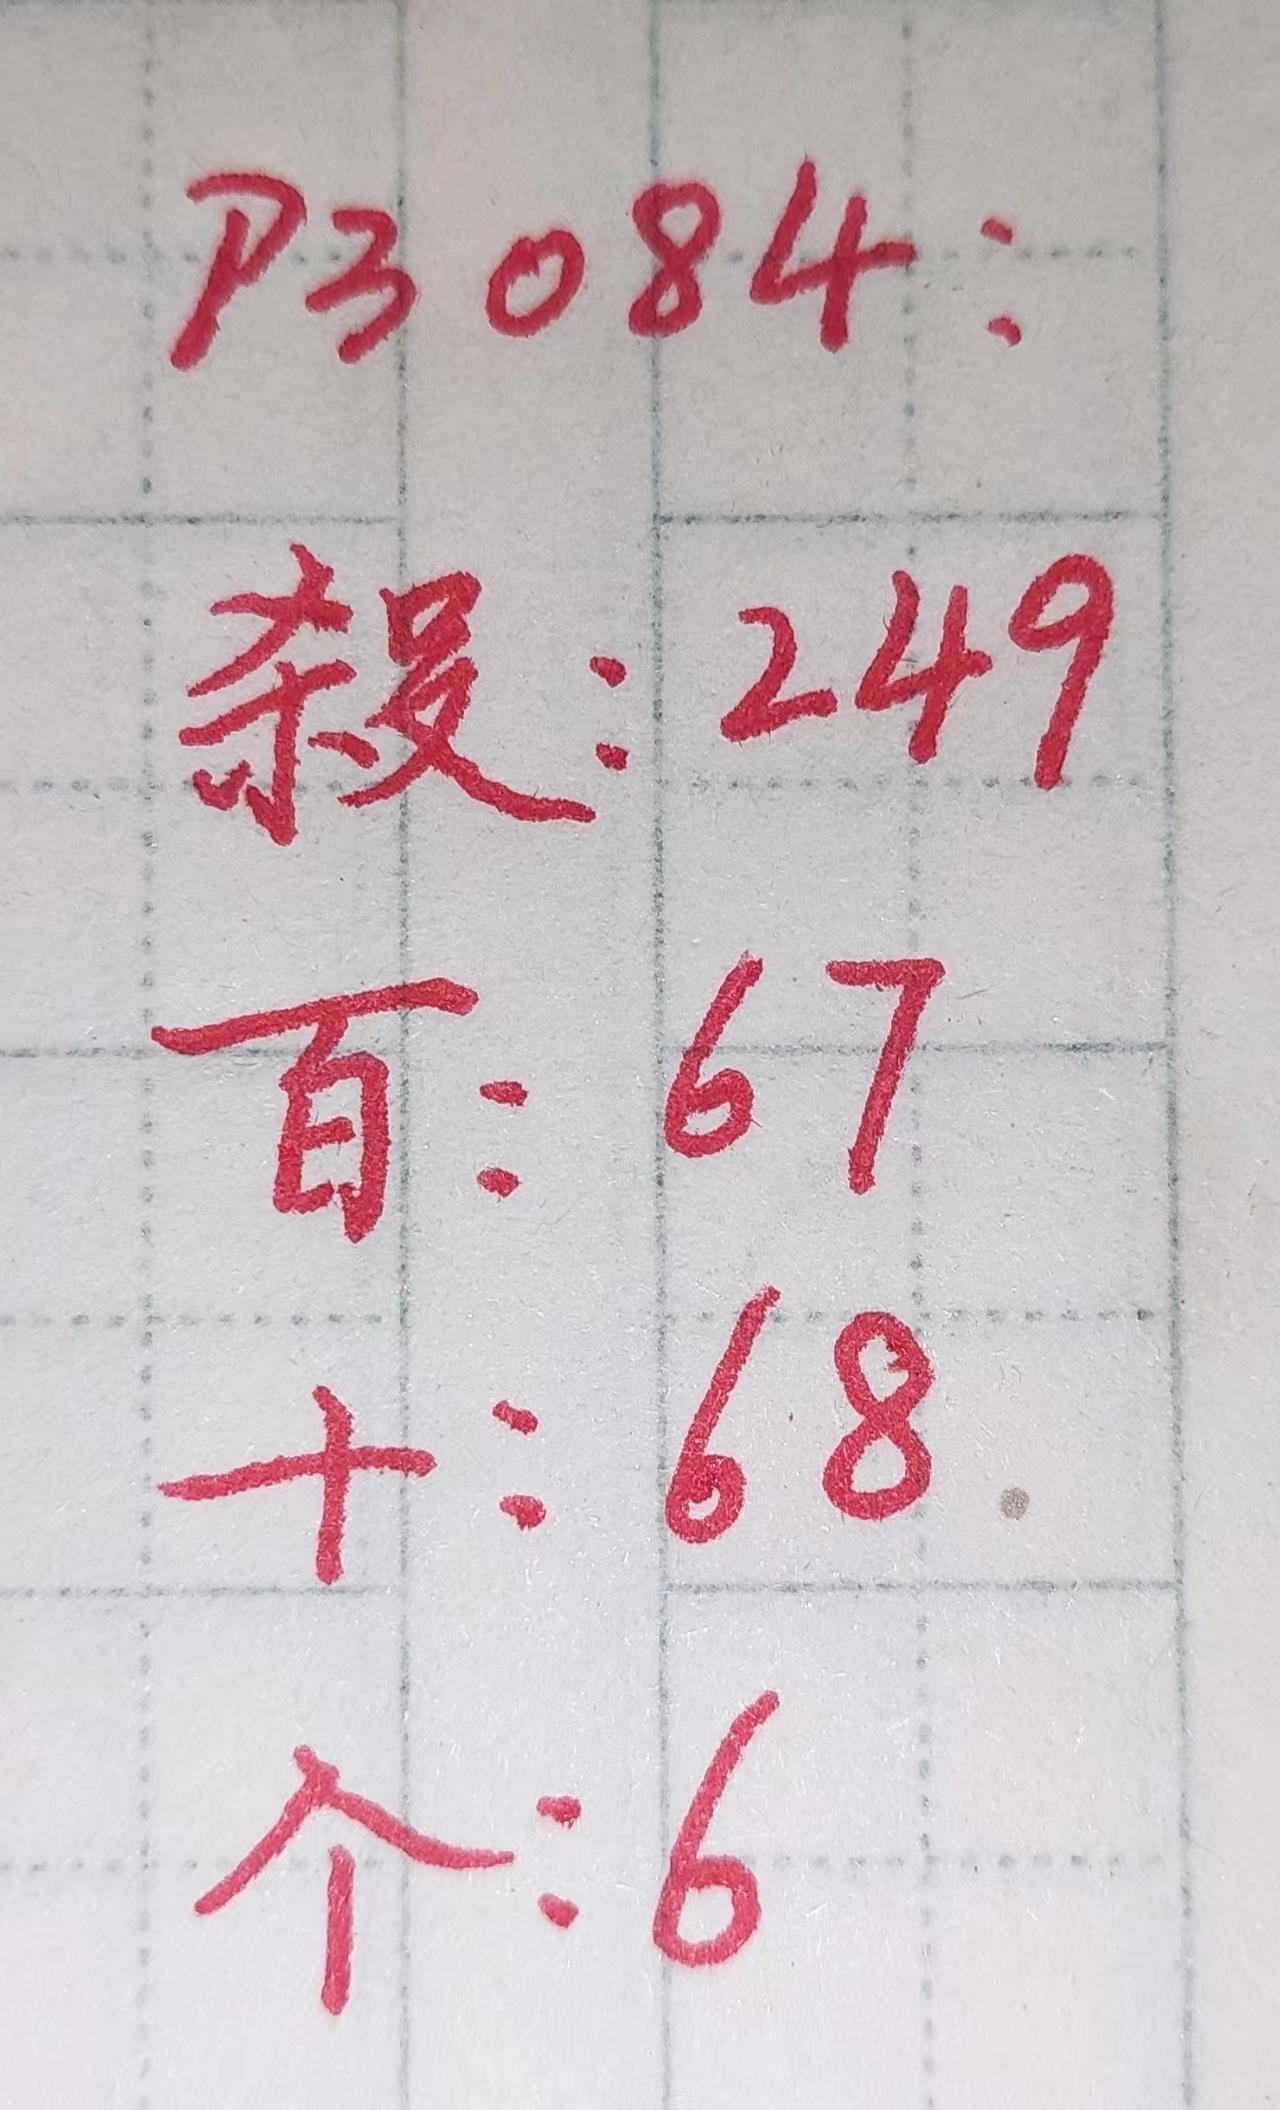 P3 084:
殺:249
百:67
十:68
个:6